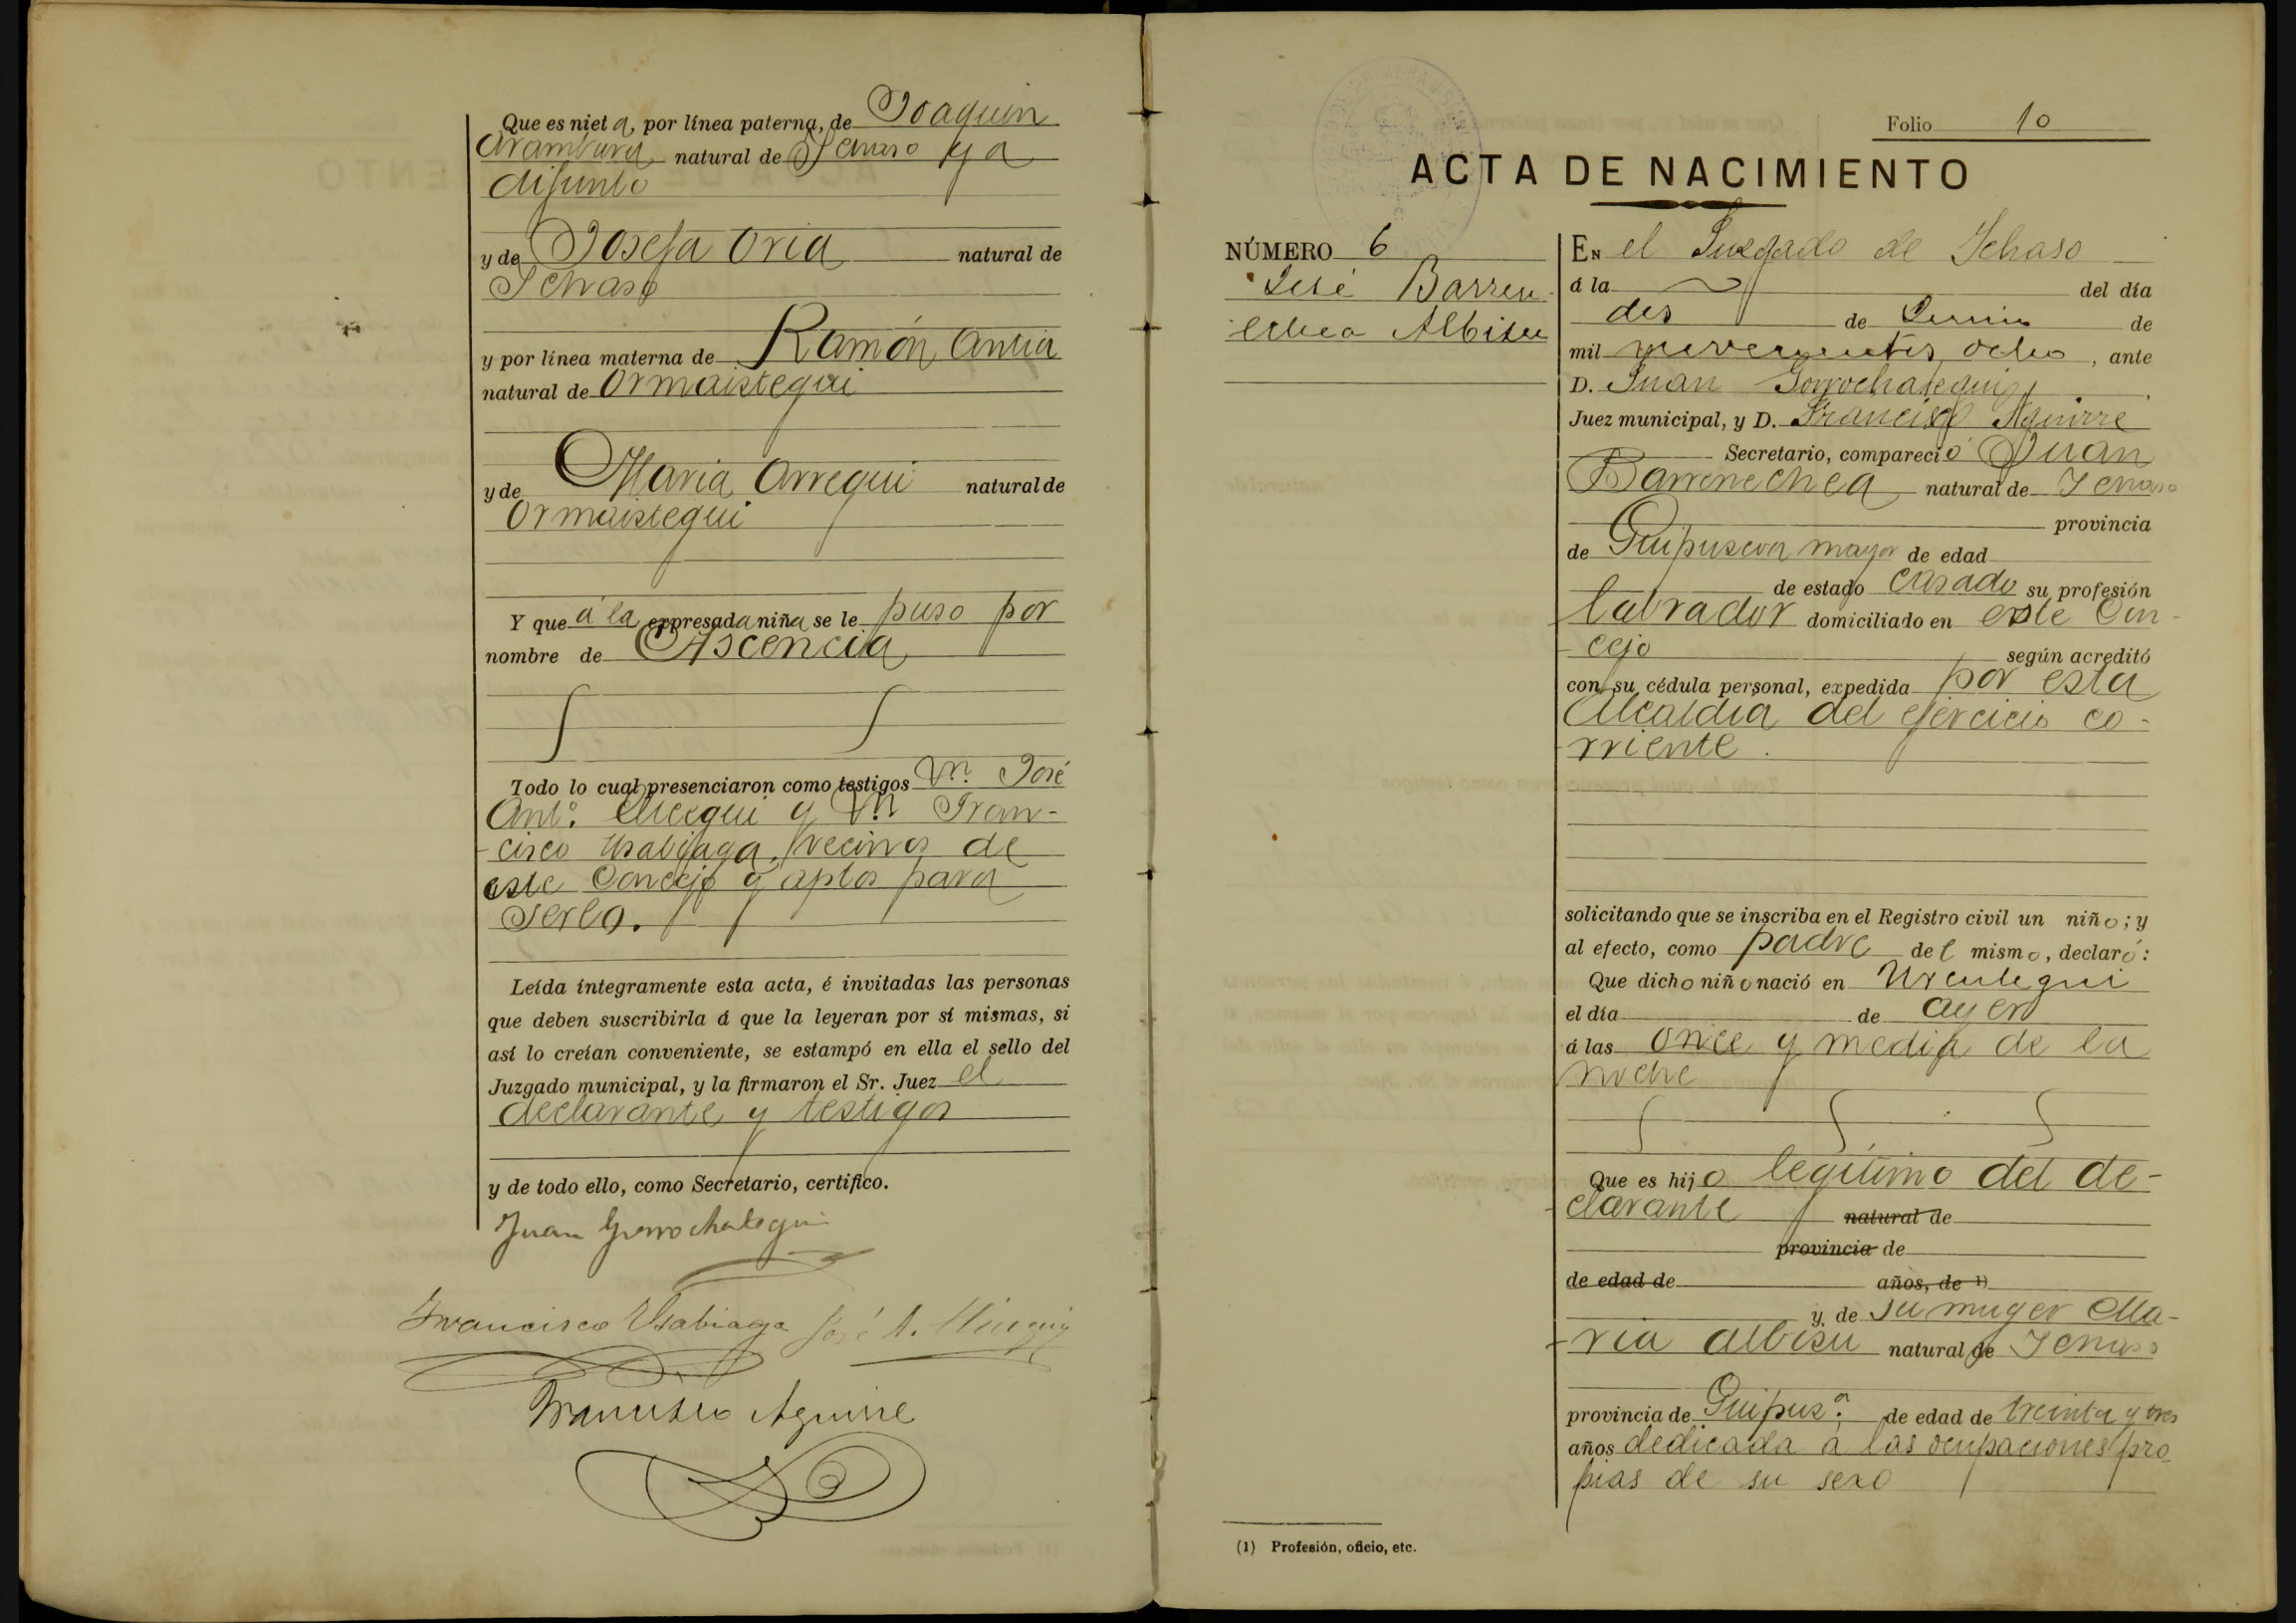 Que es nieta, por línea paterna, de Joaquin
Aramburu natural de Ichaso ya
difunto
y de Josefa Oria natural de
Ichaso
y por línea materna de Ramón Antia
natural de Ormaistegui
y de Maria Arregui natural de
Ormaistegui
Y que á la expresada niña se le puso por
nombre de Ascencia
Todo lo cual presenciaron como testigos Dn. José
Antº. y Dn. Fran-
cisco Usabiaga, vecinos de
este Concejo y aptos para
serlo.
Leída íntegramente esta acta, é invitadas las personas
que deben suscribirla á que la leyeran por sí mismas, si
así lo creían conveniente, se estampó en ella el sello del
Juzgado municipal, y la firmaron el Sr. Juez el
declarante y testigos
y de todo ello, como Secretario, certifico.
Juan Gorrochategui
Francisco Usabiaga José A.
Francisco Aguirre
Folio 10
ACTA DE NACIMIENTO
NÚMERO 6
José Barren
echea Albisu
EN el Juzgado de Ichaso
á la del día
dos de Junio de
mil novecientos ocho, ante
D. Juan Gorrochategui
Juez municipal, y D. Francisco Aguirre
Secretario, compareció Juan
Barrenechea natural de Ichaso
provincia
de Guipuscoa mayor de edad
de estado casado su profesión
labrador domiciliado en este Con-
cejo según acreditó
con su cédula personal, expedida por esta
Alcaldia del ejercicio co-
rriente.
solicitando que se inscriba en el Registro civil un niño; y
al efecto, como padre del mismo, declaró:
Que dicho niño nació en Urcutegui
el día de ayer
á las once y media de la
noche
Que es hijo legitimo del de-
clarante natural de
provincia de
de edad de años, de 1)
y de su muger Ma-
ria Albisu natural de Ichaso
provincia de Guipusª. de edad de treinta y tres
años dedicada á las ocupaciones pro
pias de su sexo
(1) Profesión, oficio, etc.